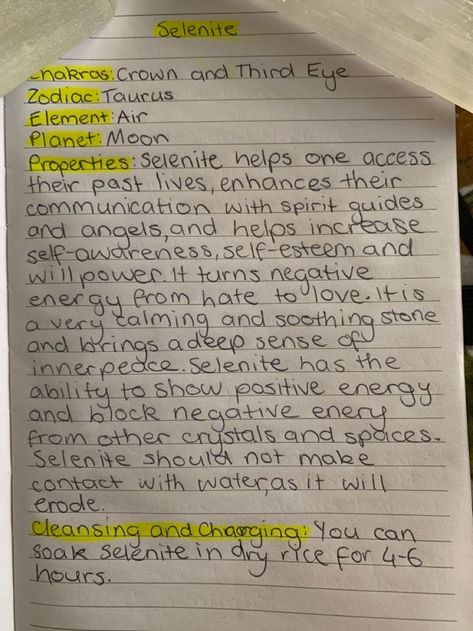 Selenite
Chakras: Crown and Third Eye
Zodiac: Taurus
Element: Air
Planet: Moon
Properties: Selenite helps one access
their past lives, enhances their
communication with spirit guides
and angels, and helps increase
self-awareness, self-esteem and
will power. It turns negative
energy from hate to love. It is
a very calming and soothing stone
and brings a deep sense of
inner peace. Selenite has the
ability to show positive energy
and block negative enery
from other crystals and spaces.
Selenite should not make
contact with water, as it will
erode.
Cleansing and Charging: You can
soak selenite in dry rice for 4-6
hours.